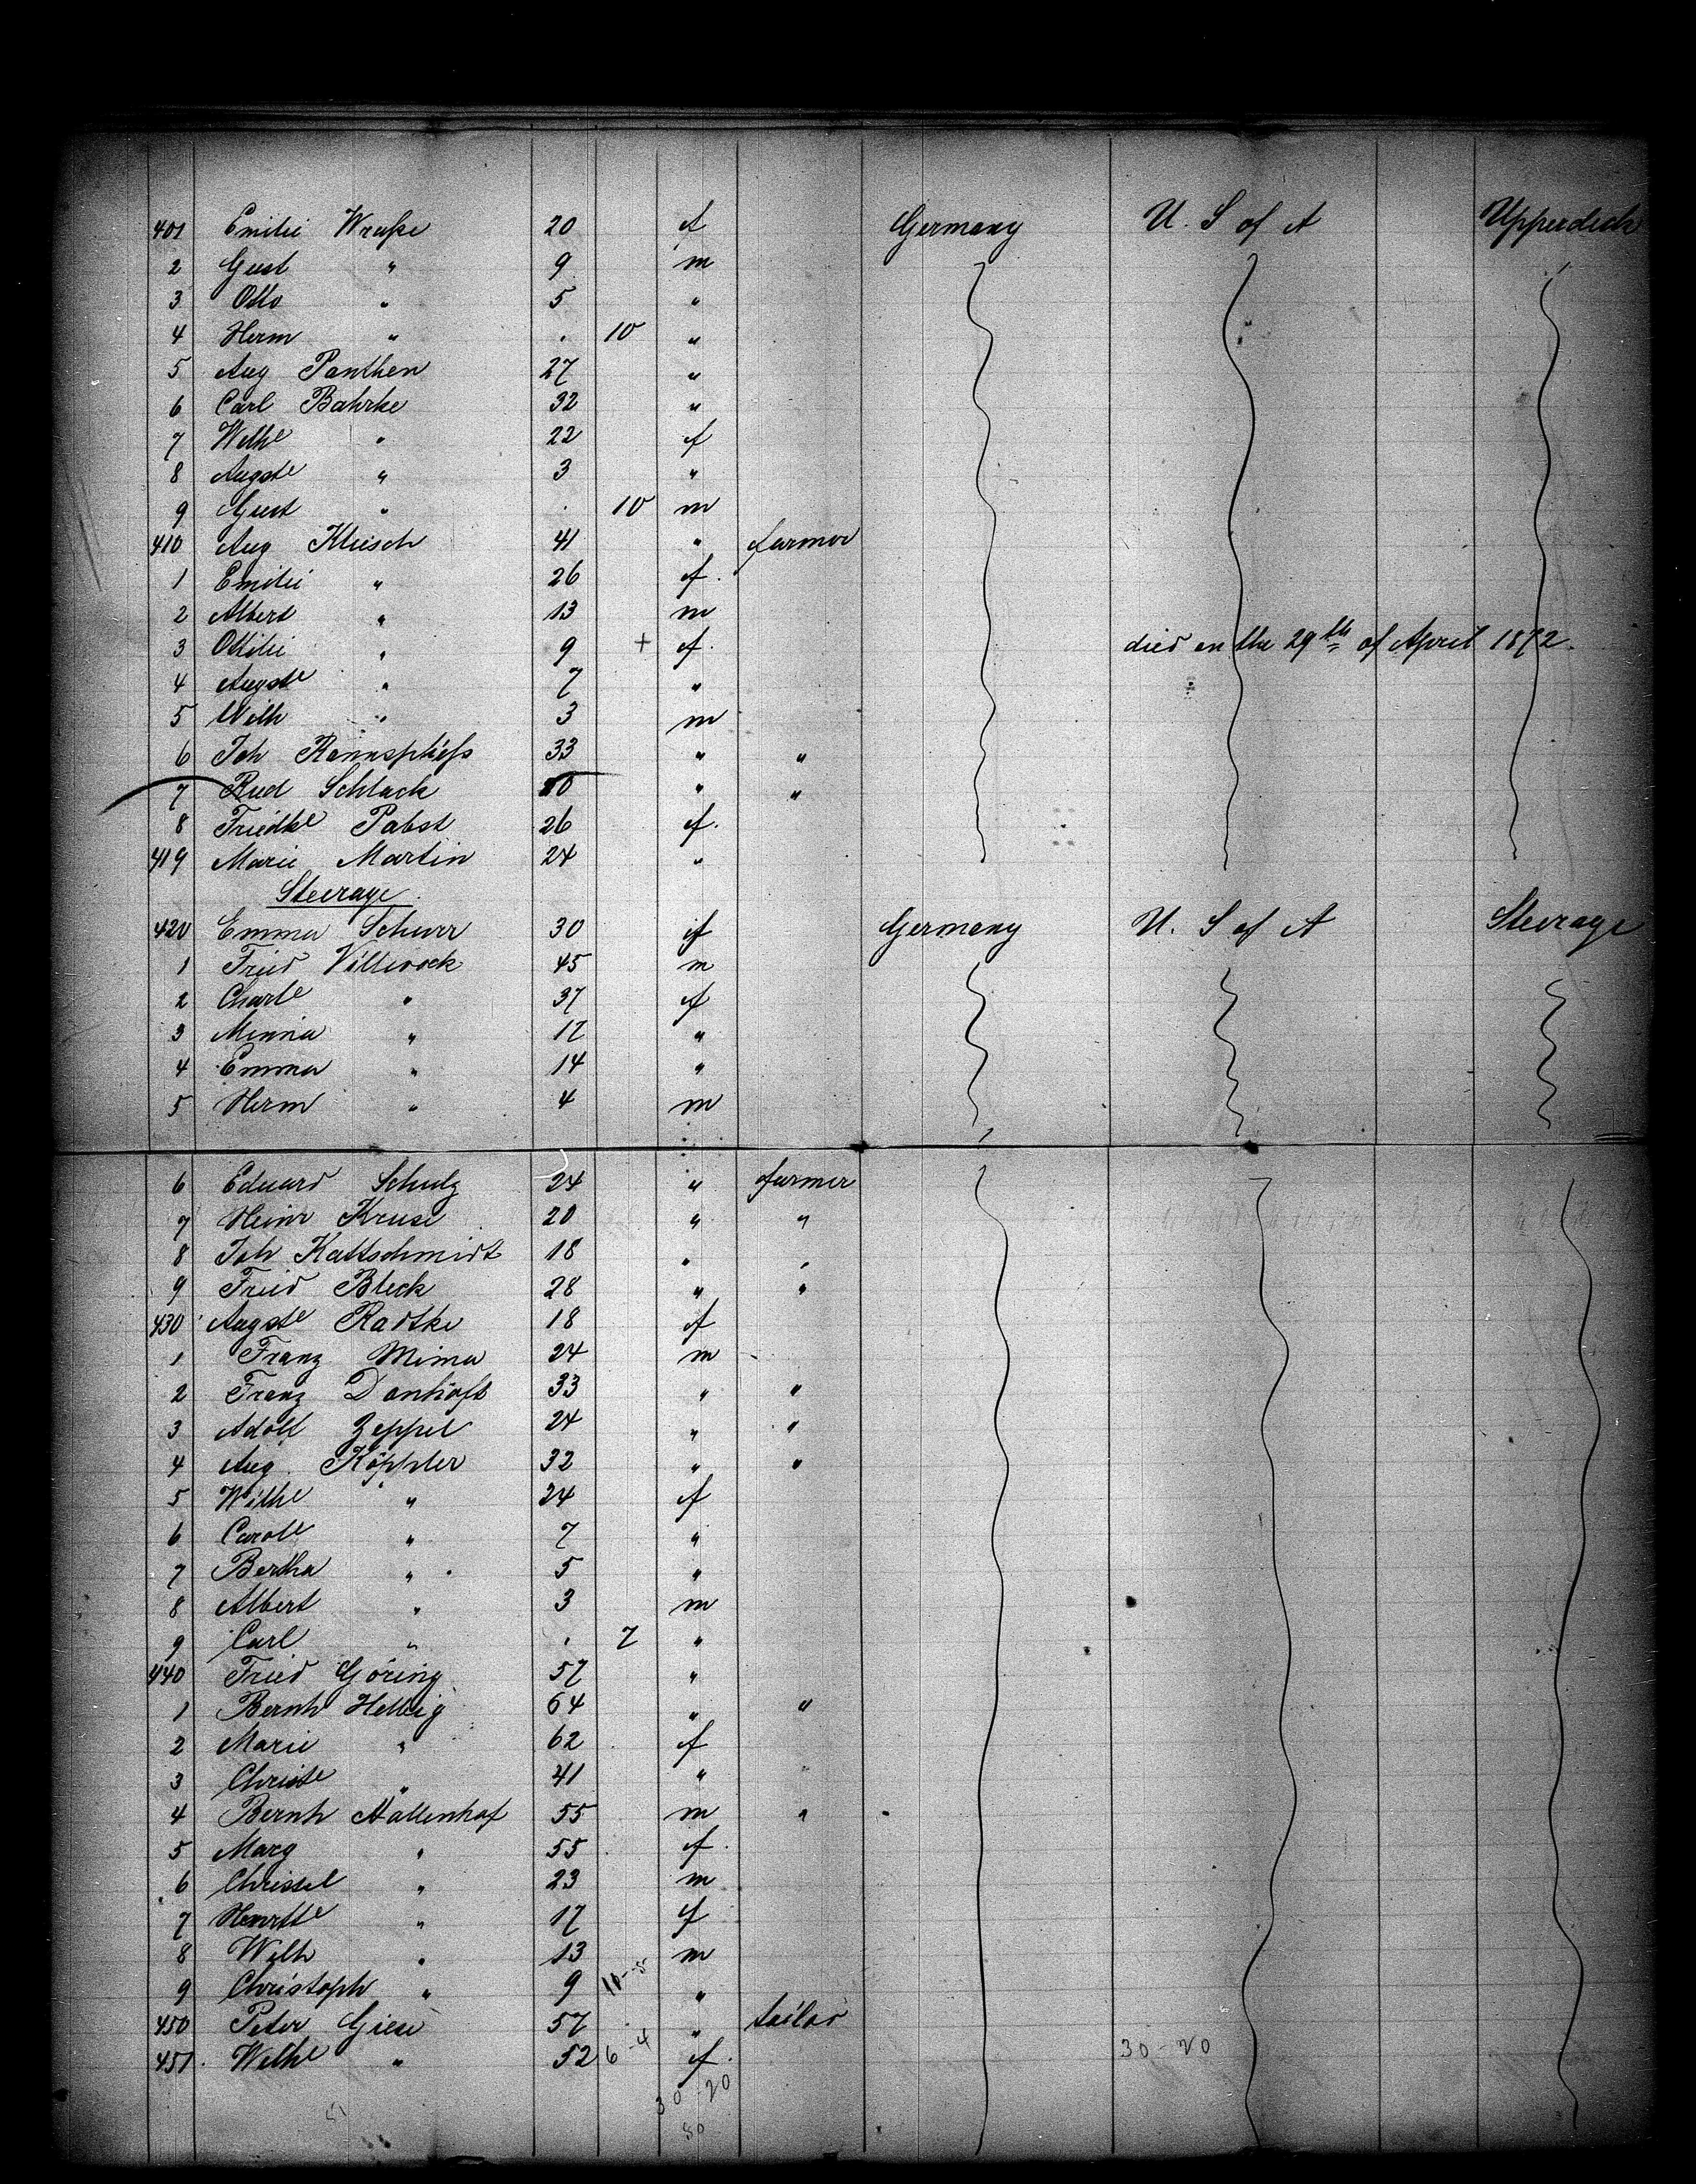 401 Emilie Wruske 20 f Germany U. S of A Upperdeck
2 Gust " 9 m
3 Otto " 5 "
4 Herm " . 10 "
5 Aug Panthen 27 "
6 Carl Bahrke 32 "
7 Wilhe " 22 f
8 Augste " 3 "
9 Gust " . 10 m
410 Aug Kliesch 41 " farmer
1 Emilie " 26 f.
2 Albert " 13 m
3 Ottilie " 9 + f. died on the 29th of April 1872.
4 Augste " 7 "
5 Wilh " 3 m
6 Joh Rannspliess 33 " "
7 Rud Schlack " "
8 Friedke Pabst 26 f.
419 Marie Martin 24 "
Steerage.
420 Emma Schurr 30 f Germany U. S of A Steerage
1 Fried Villwock 45 m
2 Charle " 37 f
3 Minna " 17 "
4 Emma " 14 "
5 Herm " 4 m
6 Eduard Schulz 24 " farmer
7 Heinr Kruse 20 " "
8 Joh Kaltschmidt 18 " "
9 Fried Bleck 28 " "
430 Augste Radtke 18 f
1 Franz Mima 24 m
2 Franz Donhöft 33 " "
3 Adolf Zeppel 24 " "
4 Aug. Köppler 32 " "
5 Wilhe " 24 f
6 Carole " 7 "
7 Bertha " 5 "
8 Albert " 3 m
9 Carl " . 7 "
440 Fried Göring 57 "
1 Bernh Helbig 64 " "
2 Marie " 62 f
3 Christe " 41 "
4 Bernh Hallenhof 55 m "
5 Marg " 55 f.
6 Christel " 23 m
7 Henrtte " 17 f
8 Wilh " 13 m
9 Christoph " 9 "
450 Peter Giese 57 " tailor
451. Wilhe " 52 6-4 f. 30-20
30 20
80